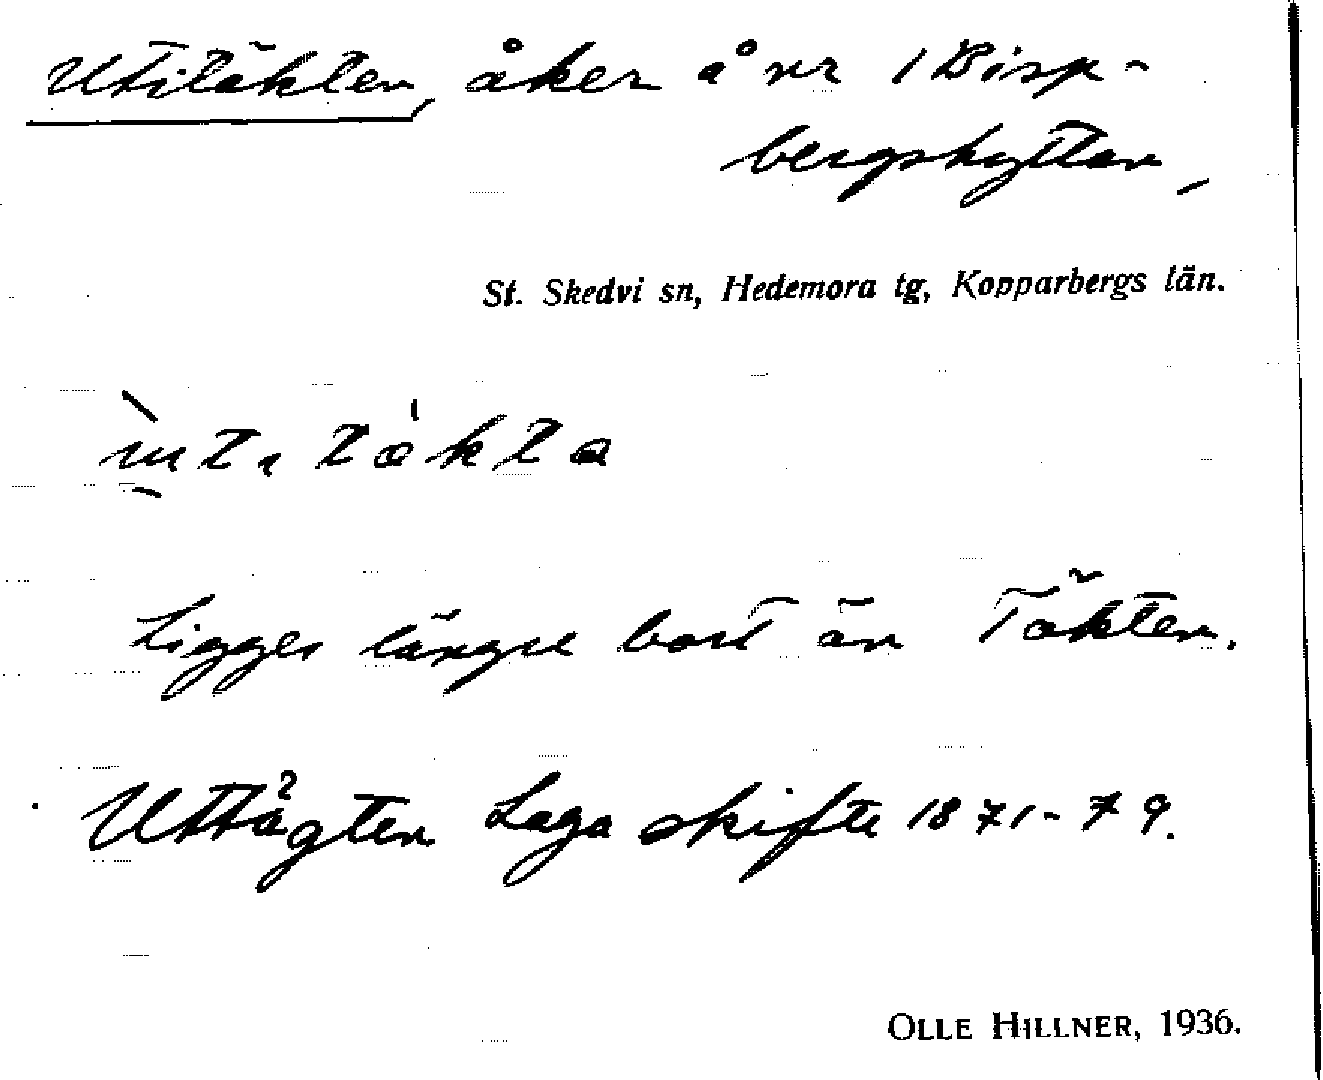 Utitäkten, åker å nr 1 Bisp-
bergshyttan,
St. Skedvi sn, Hedemora tg, Kopparbergs län.
Ligger längre bort än Täkten.
Uttägten Laga skifte 1871-79.
OLLE HILLNER, 1936.